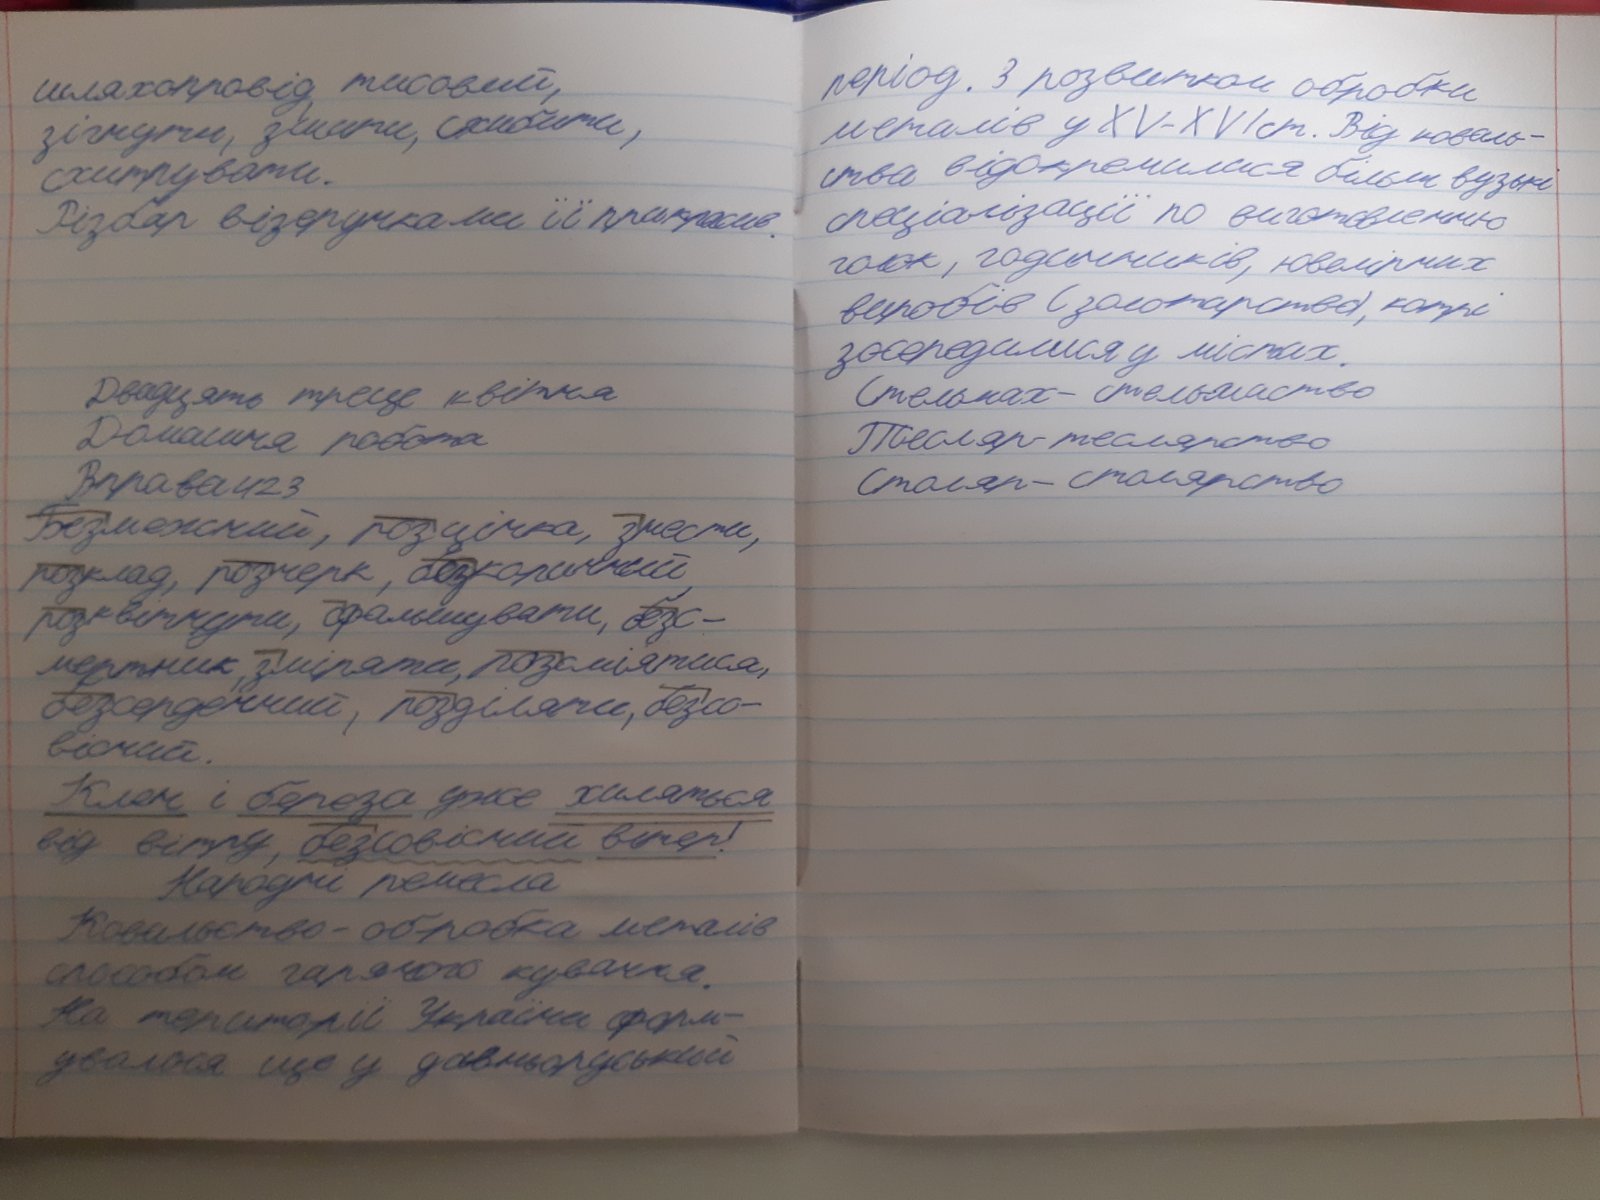 шляхопровід тисовий,
зігнути, зшити, схибити,
схитрувати.
Різбяр візерунками її прикрасив.
Двадцять треце квітня
Домашня робота
Вправа 423
Безмежний, розцінка, знести,
розклад, розчерк, безкоричний,
розквітнути, сфальшувати, безс-
мертник, зміряти, розсміятися,
безсердечний, розділяти, безсо-
вісний.
Клен і береза дже хиляться
від вітру, безсовісний вітер!
Народні ремесла
Ковальство - обробка металів
способом гарячого кування.
На території України форм-
увалося ще у давньоруський
період. З розвитком обробки
металів у XV-XVI ст. Від коваль-
ства відокремилися більш вузькі
спеціалізації по виготовленню
голок, годинників, ювелірних
виробів (золотарство), котрі
зосередилися у містах.
Стельмах - стельмаство
Тесляр - теслярство
Столяр - столярство